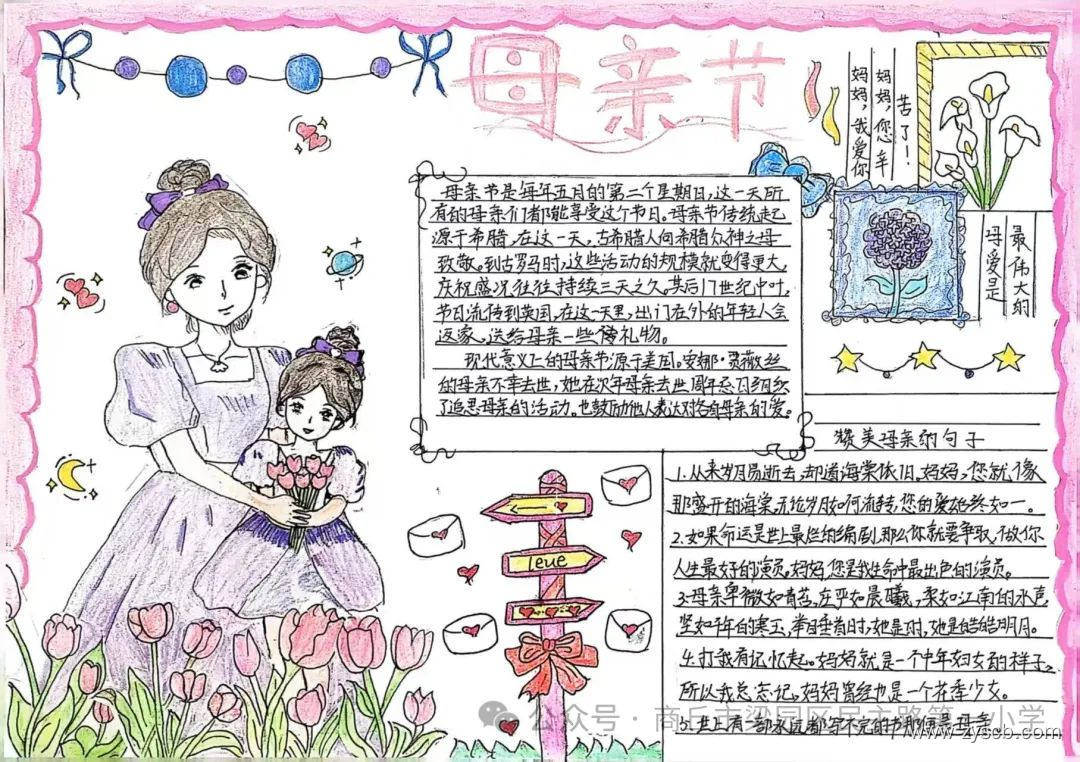 母亲节
妈妈，我爱你
妈妈，您辛
苦了！
母亲节是每年五月的第二个星期日，这一天所
有的母亲们都能享受这个节日。母亲节传统起
源于希腊，在这一天，古希腊人向希腊众神之母
致敬。到古罗马时，这些活动的规模就变得更大，
庆祝盛况往往持续三天之久。其后17世纪中叶，
节日流传到英国，在这一天里，出门在外的年轻人会
返家，送给母亲一些礼物。
现代意义上的母亲节源于美国。安娜·贾薇丝
的母亲不幸去世，她在次年母亲去世周年忌日组织
了追思母亲的活动。也鼓励他人表达对各自母亲的爱。
母爱是
最伟大的
leue
赞美母亲的句子
1.从来岁月易逝去，却道海棠依旧。妈妈，您就像
那盛开的海棠，无论岁月如何流转，您的爱始终如一。
2.如果命运是世上最烂的编剧，那么你就要争取，做你
人生最好的演员。妈妈，您是我生命中最出色的演员。
3.母亲卑微如青苔，庄严如晨曦，柔如江南的水声，
坚如千年的寒玉，举目垂首时，她是
她是皓皓明月。
4.打我有记忆起。妈妈就是一个中年妇女的样子，
所以我总忘记，妈妈曾经也是一个花季少女。
5.世上有一部永远都写不完的书那便是母亲
公众号·商丘市梁园区民主路第一小学
www.zyscb.com